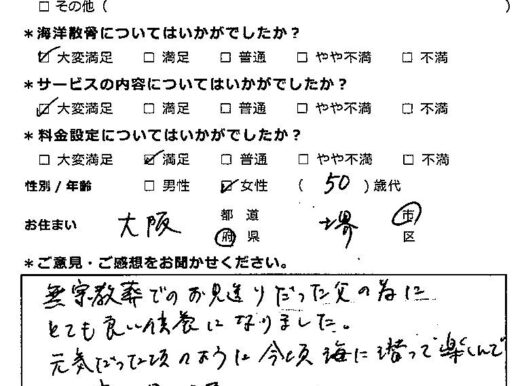 □ その他(　　　)
*海洋散骨についてはいかがでしたか?
☑ 大変満足 □ 満足 □ 普通 □ やや不満 □ 不満
*サービスの内容についてはいかがでしたか?
☑ 大変満足 □ 満足 □ 普通 □ やや不満 □ 不満
*料金設定についてはいかがでしたか?
□ 大変満足 ☑ 満足 □ 普通 □ やや不満 □ 不満
性別/年齢 □ 男性 ☑ 女性 ( 50 )歳代
お住まい 大阪 都 道 府 県 堺 市 区
*ご意見・ご感想をお聞かせください。
無宗教葬でのお見送りだった父の為に
とても良い供養になりました。
元気だった頃のように今頃海に潜って楽しんで